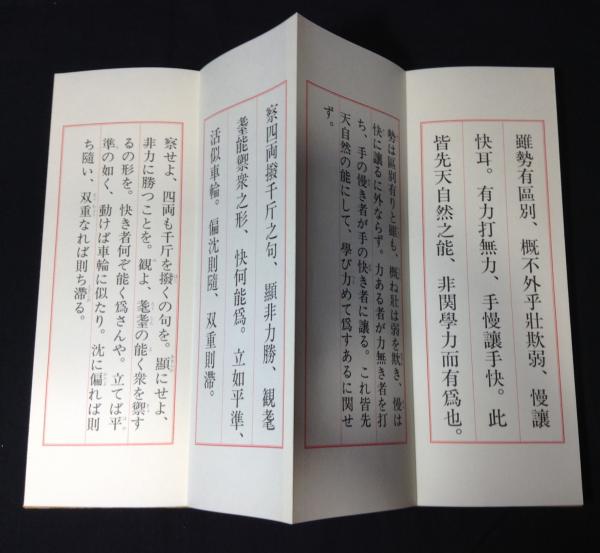 雖勢有區別、概不外乎壯欺弱、慢讓
快耳。有力打無力、手慢讓手快。此
皆先天自然之能、非関學力而有爲也。
勢は區別有りと雖も、概ね壮は弱を欺き、慢は
快に讓るに外ならず。力ある者が力無き者を打
ち、手の慢き者が手の快き者に讓る。これ皆先
天自然の能にして、學び力めて爲すあるに関せ
ず。
察四両撥千斤之句、顯非力勝、観耄
耋能禦衆之形、快何能爲。立如平準、
活似車輪。偏沈則隨、双重則滞。
察せよ、四両も千斤を撥くの句を。顯にせよ、
非力に勝つことを。観よ、耄耋の能く衆を禦す
るの形を。快き者何ぞ能く爲さんや。立てば平
準の如く、動けば車輪に似たり。沈に偏れば則
ち隨い、双重なれば則ち滞る。